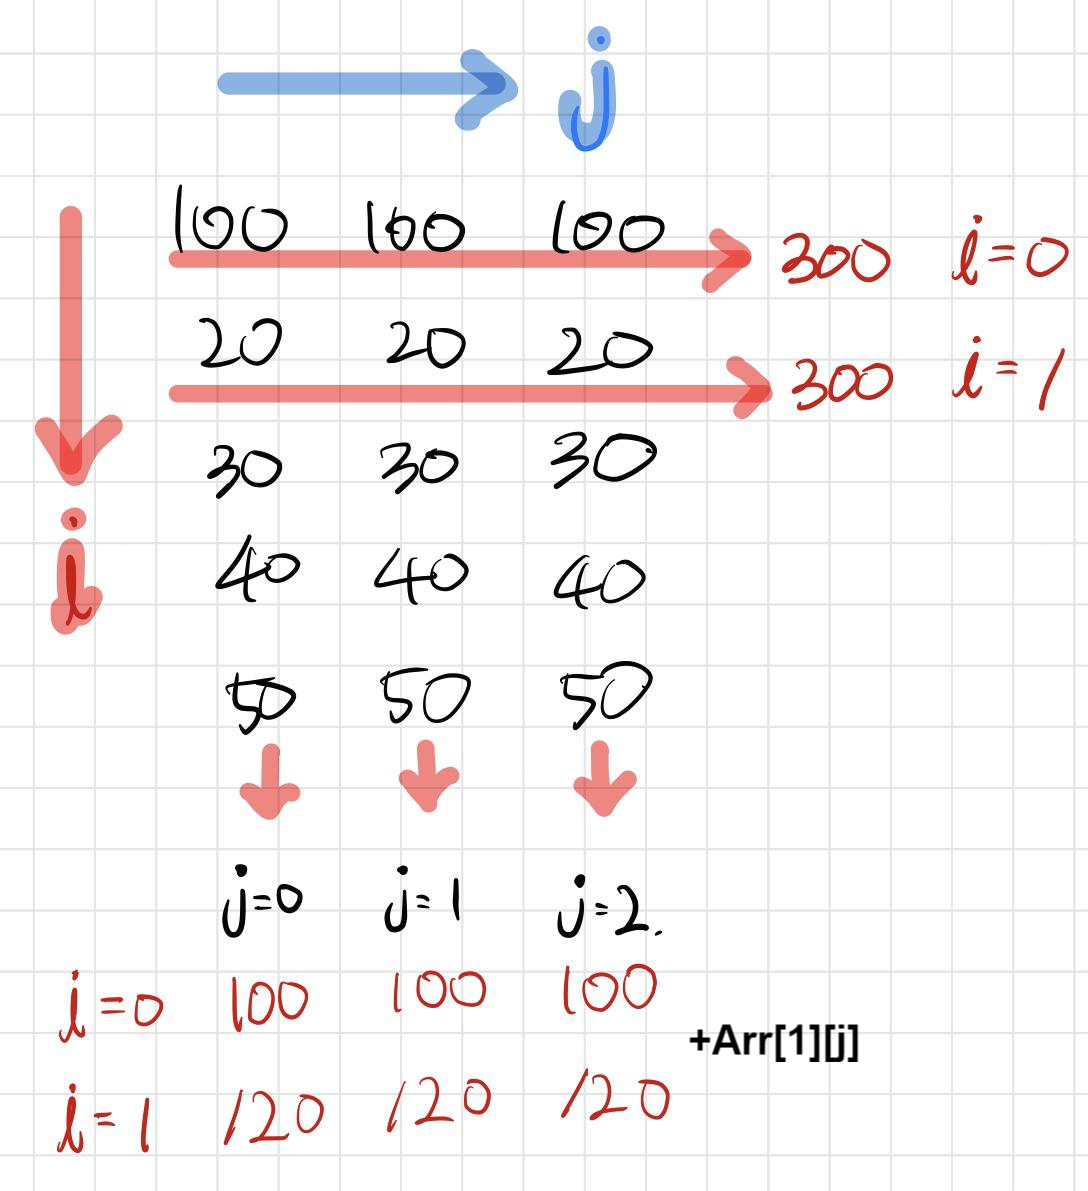 j
100 100 100 300 i=0
20 20 20 300 i=1
30 30 30
i
40 40 40
50 50 50
j=0 j=1 j=2.
i=0 100 100 100
+Arr[1][j]
i=1 120 120 120